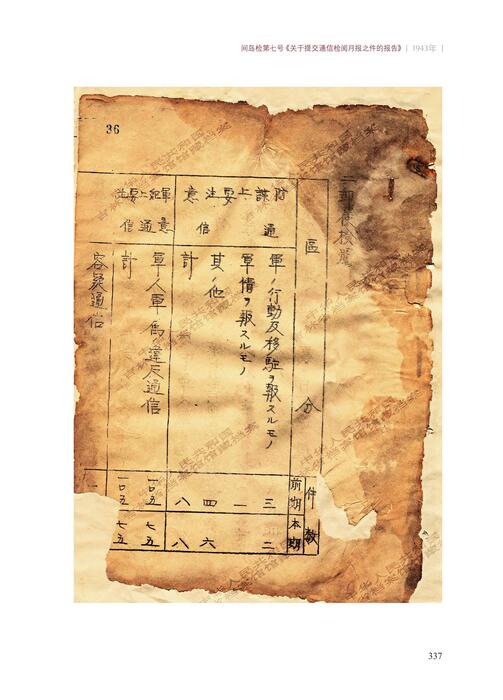 间岛检第七号《关于提交通信检阅月报之件的报告》 | 1943年 |
36
區分
件數
前期
本期
防諜上要注意
通信
軍ノ行動及移駐ヲ報スルモノ 三 二
軍情ヲ報スルモノ 一
其ノ他 四 六
計 八 八
軍紀上要注意
通信
軍人軍属ノ違反通信 一〇五 七五
計 一〇五 七五
容疑通信 一
337